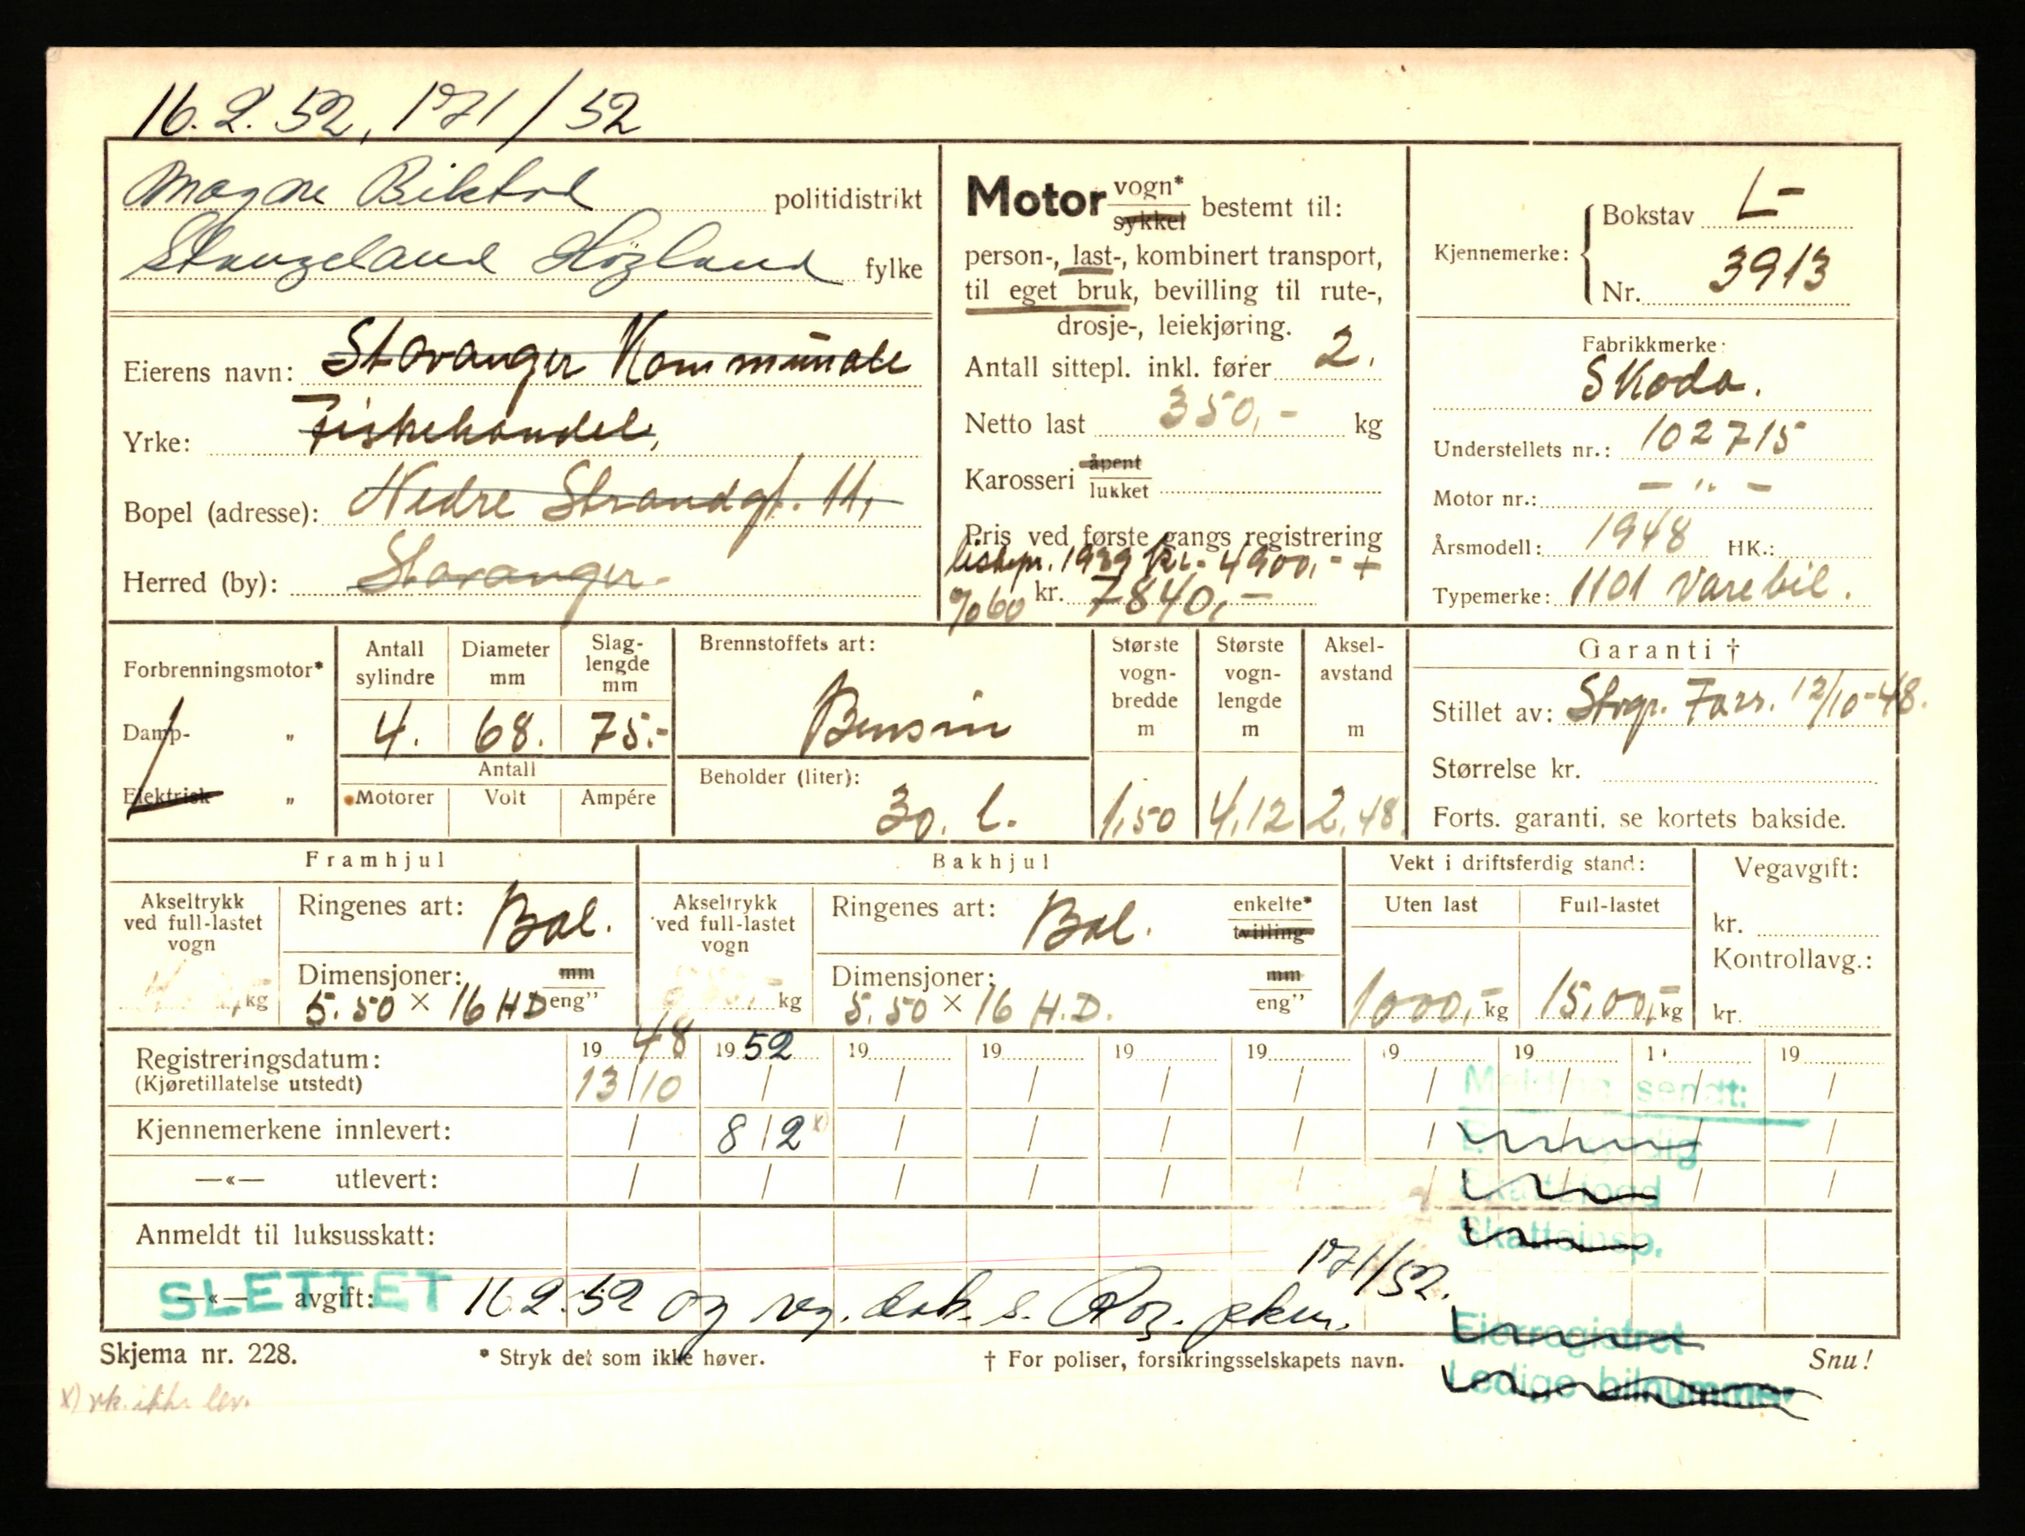 16.2.52, 171/52
Magne politidistrikt
Stangeland Høgland fylke
Eierens navn: Stavanger Kommunale
Yrke: Fiskehandel,
Bopel (adresse): Nedre Strandgt. 11,
Herred (by): Stavanger.
Motor vogn* sykkel bestemt til:
person-, last-, kombinert transport,
til eget bruk, bevilling til rute-,
drosje-, leiekjøring.
Antall sittepl. inkl. fører 2.
Netto last 350,- kg
Karosseri åpent lukket
Pris ved første gangs registrering
listepr. 1939 Kr. 4900,- +
% 60 kr. 7840,-
Kjennemerke:
Bokstav L-
Nr. 3913
Fabrikkmerke:
Skoda.
Understellets nr.: 102715
Motor nr.: - " -
Årsmodell: 1948 HK.:
Typemerke: 1101 Varebil.
Forbrenningsmotor*
Damp- "
Elektrisk "
Antall sylindre
4.
Diameter mm
68.
Slag-lengde mm
75.-
Antall
Motorer Volt Ampére
Brennstoffets art:
Bensin
Beholder (liter):
30. l.
Største vogn-bredde m
1,50
Største vogn-lengde m
4,12
Aksel-avstand m
2,48
Garanti †
Stillet av: Stvgr. Fors. 12/10-48.
Størrelse kr.
Forts. garanti, se kortets bakside.
Framhjul
Akseltrykk ved full-lastet vogn
kg
Ringenes art: Bal.
Dimensjoner: mm
5.50 × 16 HD eng"
Bakhjul
Akseltrykk ved full-lastet vogn
kg
Ringenes art: Bal. enkelte* tvilling
Dimensjoner: mm
5.50 × 16 H.D. eng"
Vekt i driftsferdig stand:
Uten last Full-lastet
1000,- kg 1500,- kg
Vegavgift:
kr.
Kontrollavg.:
kr.
Registreringsdatum: 19 48 19 52 19 19 19 19 19 19 1 19
(Kjøretillatelse utstedt) 13/10 / / / / / / / / /
Melding sendt:
Kjennemerkene innlevert: / 8/2 x) / / / / / / / /
—«— utlevert: / / / / / / / / / /
Skatteinsp.
Anmeldt til luksusskatt:
171/52.
—«— avgift:
SLETTET 16.2.52 og
Eierregistret
Ledige bilnummer
Skjema nr. 228.
* Stryk det som ikke høver.
† For poliser, forsikringsselskapets navn.
Snu!
x) vk. ikke lev.